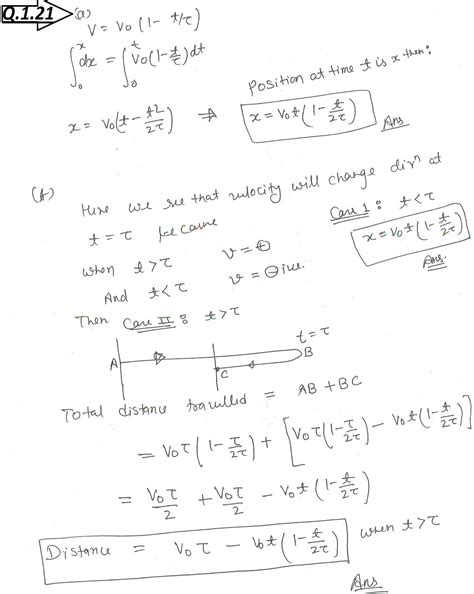 Q.1.21 (a)
V = V₀ (1 - t/τ)
∫₀ˣ dx = ∫₀ᵗ V₀(1 - t/τ) dt
Position at time t is x then:
x = V₀(t - t²/2τ) ⇒ x = V₀t(1 - t/2τ) Ans
(b) Here we see that velocity will change dirⁿ at
t = τ because
Case I : t < τ
x = V₀t(1 - t/2τ)
Ans.
when t > τ v = ⊕
And t < τ v = ⊖ive.
Then Case II : t > τ
t = τ
A B
C
Total distance travelled = AB + BC
= V₀τ(1 - τ/2τ) + [V₀τ(1 - τ/2τ) - V₀t(1 - t/2τ)]
= V₀τ/2 + V₀τ/2 - V₀t(1 - t/2τ)
Distance = V₀τ - V₀t(1 - t/2τ) when t > τ
Ans